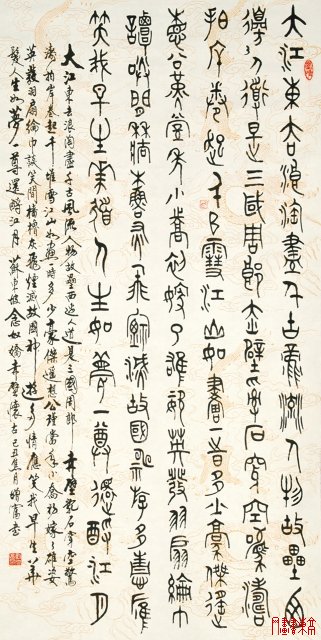 大江東去浪淘盡千古風流人物故壘西
邊人道是三國周郎赤壁亂石穿空驚濤
拍岸卷起千堆雪江山如畫一時多少豪傑遙
想公瑾當年小喬初嫁了雄姿英發羽扇綸巾
談笑間檣櫓灰飛煙滅故國神游多情應
笑我早生華髮人生如夢一尊還酹江月
大江東去浪淘盡千古風流人物故壘西邊人道是三國周郎赤壁亂石穿空驚
濤拍岸卷起千堆雪江山如畫一時多少豪傑遙想公瑾當年小喬初嫁了雄姿
英發羽扇綸巾談笑間檣櫓灰飛煙滅故國神游多情應笑我早生華
髮人生如夢一尊還酹江月 蘇東坡念奴嬌赤壁懷古己丑焦月書